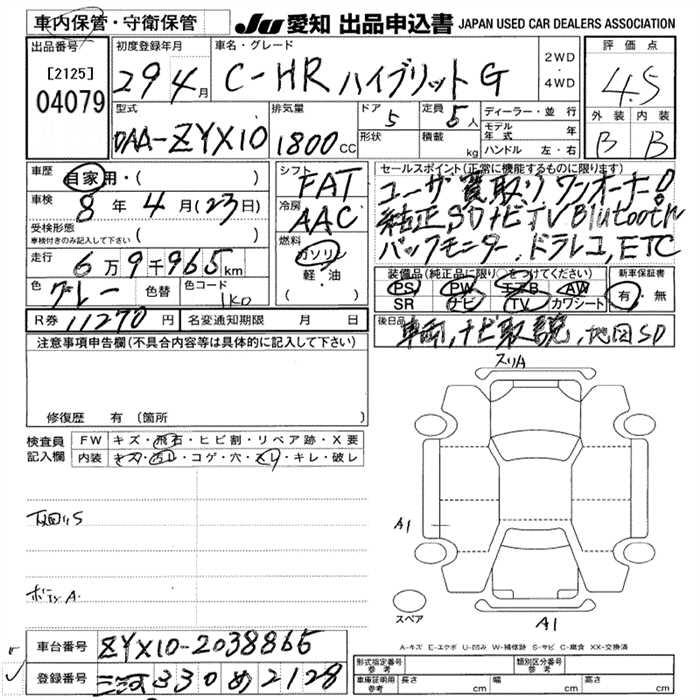 車内保管・守衛保管
JU 愛知 出品申込書 JAPAN USED CAR DEALERS ASSOCIATION
出品番号
[2125]
04079
初度登録年月
29年4月
車名・グレード
C-HR ハイブリット G
2WD
・
4WD
評価点
4.5
外装 内装
B B
型式
DAA-ZYX10
排気量
1800CC
ドア
5
定員
5人
形状
積載
kg
ディーラー・並行
モデル年式 年
ハンドル 左・右
車歴
自家用・( )
車検
8年4月(23日)
受検形態
車検付きのみ記入して下さい ( )
走行
6万9千965km
色
グレー
色替
色コード
1K0
シフト
FAT
冷房
AAC
燃料
ガソリン
軽・油
セールスポイント(正常に機能するものに限ります)
ユーザー買取り ワンオーナー!
純正SDナビTV Blutooth
バックモニター、ドラレコ、ETC
装備品(純正品に限り○をつけてください)
PS PW エアB AW
SR ナビ TV カワシート
新車保証書
有・無
R券 11270円
名変通知期限 月 日
後日品
車両、ナビ取説、地図SD
注意事項申告欄(不具合内容等は具体的に記入して下さい)
修復歴 有(箇所 )
検査員記入欄
FW キズ・飛石・ヒビ割・リペア跡・X要
内装 キズ・汚レ・コゲ・穴・スレ・キレ・破レ
下回りS
ボディA
スリA
A1
A1
スペア
A-キズ E-エクボ U-凹み W-補修跡 S-サビ C-腐食 XX-交換済
車台番号 ZYX10-2038865
登録番号 三河330 め 2128
形式指定番号 参考
類別区分番号 参考
車庫証明用参考 長さ cm 幅 cm 高さ cm